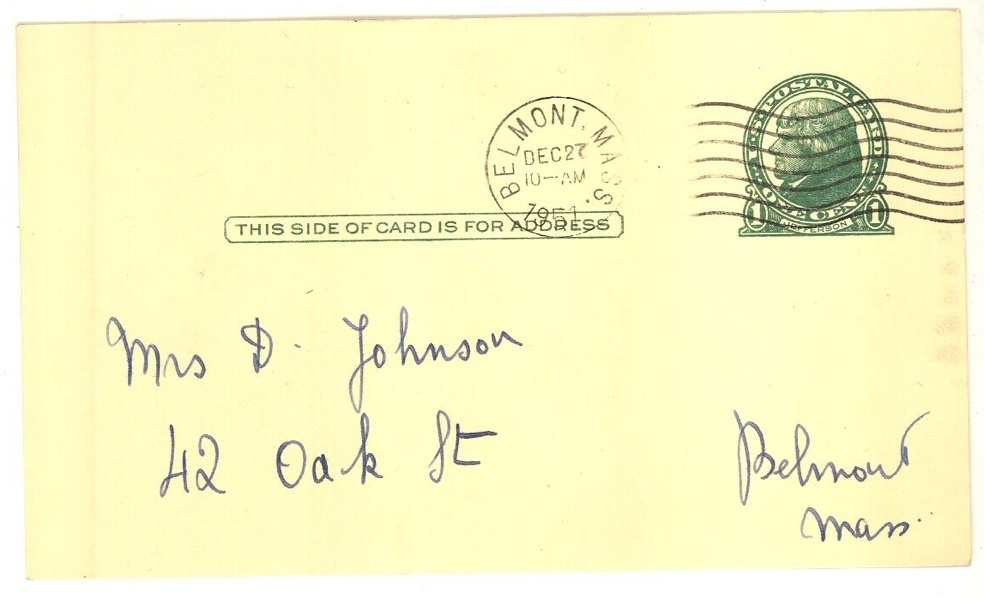 BELMONT, MASS.
DEC 27
10-AM
1951
U.S. POSTAL CARD
ONE CENT
1 JEFFERSON 1
THIS SIDE OF CARD IS FOR ADDRESS
Mrs D. Johnson
42 Oak St
Belmont
Mass.